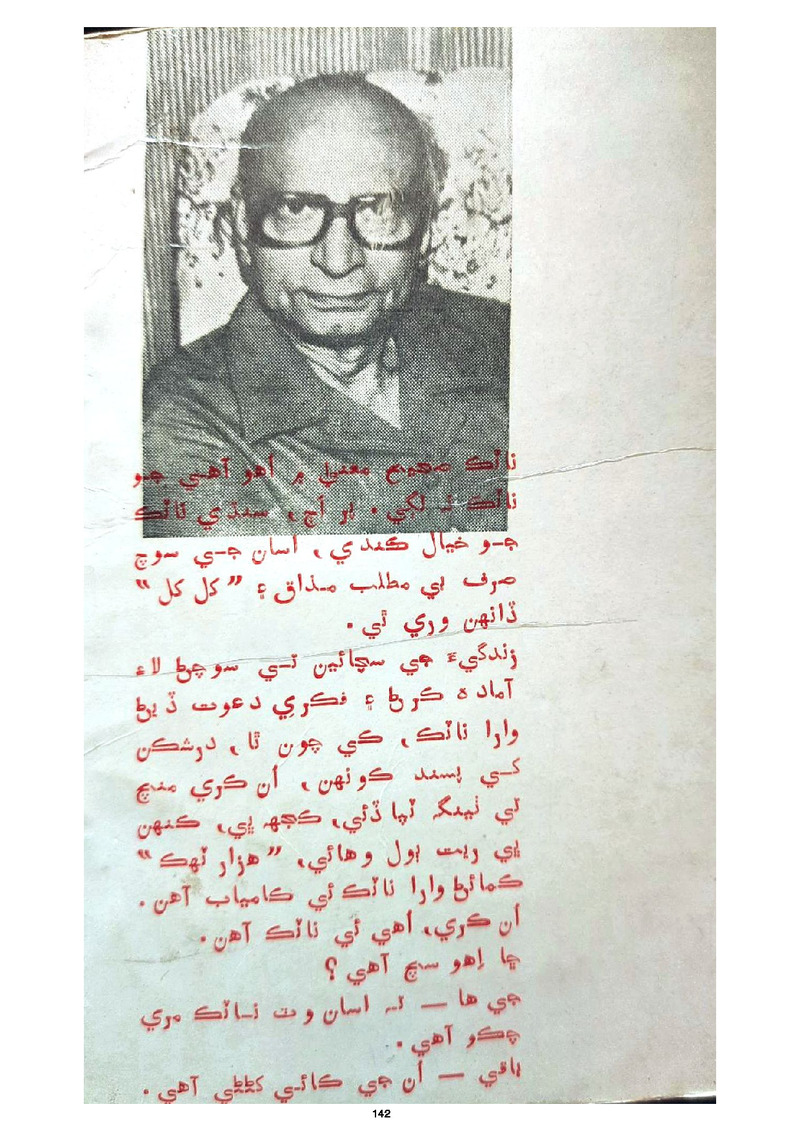 ناٽڪ صحيح معنيٰ ۾ اُهو آهي جو
ناٽڪ نہ لڳي. پر اڄ، سنڌي ناٽڪ
جو خيال ڪندي، اسان جي سوچ
صرف بي مطلب مذاق ۽ ”کل کل“
ڏانهن وري ٿي.
زندگيءَ جي سچائين تي سوچڻ لاءِ
آمادہ ڪرڻ ۽ فڪري دعوت ڏيڻ
وارا ناٽڪ، ڪي چون ٿا، درشڪن
کي پسند ڪونهن، اُن ڪري منچ
تي ٽپا ڏئي، ڪجهہ بي، ڪنهن
بي ريت ٻول وهائي، ”هزار ٽهڪ“
ڪمائڻ وارا ناٽڪ ئي ڪامياب آهن.
اُن ڪري، اُهي ئي ناٽڪ آهن.
ڇا اِهو سچ آهي؟
جي ها — تہ اسان وٽ ناٽڪ مري
چڪو آهي.
باقي — اُن جي ڪاٺي کڻڻي آهي.
142